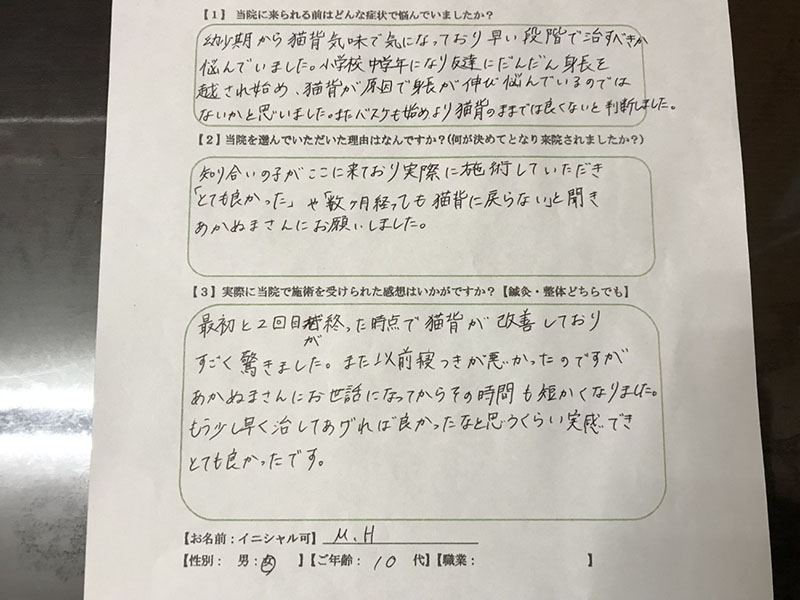 【1】 当院に来られる前はどんな症状で悩んでいましたか？
幼少期から猫背気味で気になっており早い段階で治すべきか
悩んでいました。小学校中学年になり友達にだんだん身長を
越され始め、猫背が原因で身長が伸び悩んでいるのでは
ないかと思いました。またバスケも始めより猫背のままでは良くないと判断しました。
【2】当院を選んでいただいた理由はなんですか？(何が決めてとなり来院されましたか？)
知り合いの子がここに来ており実際に施術していただき
「とても良かった」や「数ヶ月経っても猫背に戻らない」と聞き
あかぬまさんにお願いしました。
【3】実際に当院で施術を受けられた感想はいかがですか？【鍼灸・整体どちらでも】
最初と2回目が終った時点で猫背が改善しており
すごく驚きました。また以前寝つきが悪かったのですが
あかぬまさんにお世話になってからその時間も短かくなりました。
もう少し早く治してあげれば良かったなと思うくらい実感でき
とても良かったです。
【お名前：イニシャル可】 M.H
【性別： 男：女 】【ご年齢： 10 代】【職業： 】